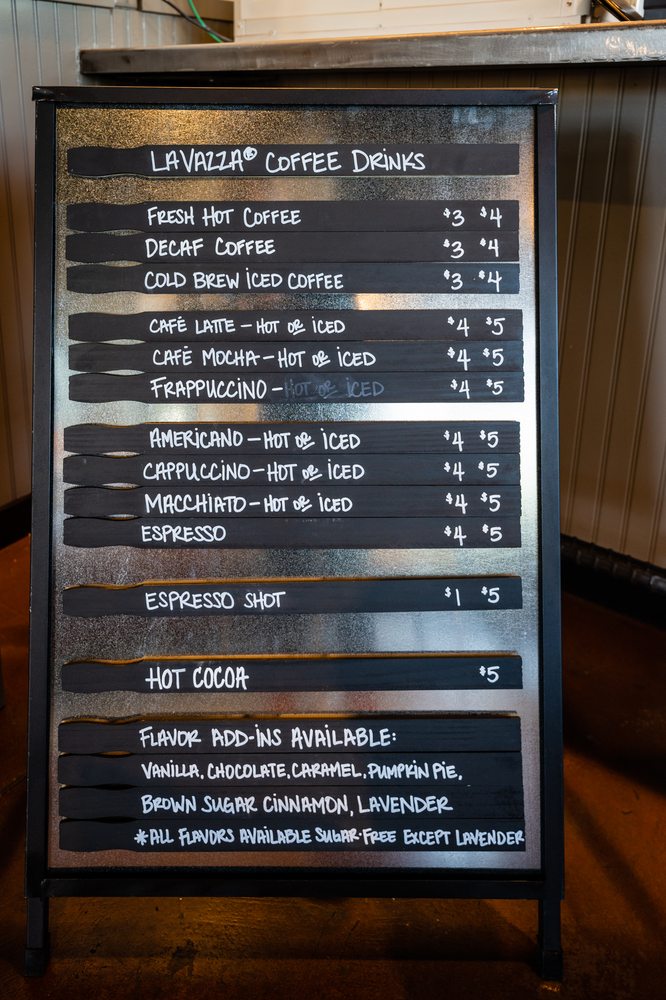 LAVAZZA® COFFEE DRINKS
FRESH HOT COFFEE $3 $4
DECAF COFFEE $3 $4
COLD BREW ICED COFFEE $3 $4
CAFÉ LATTE - HOT OR ICED $4 $5
CAFÉ MOCHA - HOT OR ICED $4 $5
FRAPPUCCINO - HOT OR ICED $4 $5
AMERICANO - HOT OR ICED $4 $5
CAPPUCCINO - HOT OR ICED $4 $5
MACCHIATO - HOT OR ICED $4 $5
ESPRESSO $4 $5
ESPRESSO SHOT $1 $5
HOT COCOA $5
FLAVOR ADD-INS AVAILABLE:
VANILLA, CHOCOLATE, CARAMEL, PUMPKIN PIE,
BROWN SUGAR CINNAMON, LAVENDER
*ALL FLAVORS AVAILABLE SUGAR-FREE EXCEPT LAVENDER